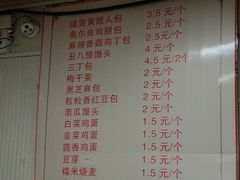 咸蛋黄超人包 3.5元/个
奥尔良鸡腿包 2.5元/个
麻辣香菇鸡丁包 2.5元/个
丑八怪馒头 4元/个
三丁包 4.5元/2个
梅干菜 2元/个
黑芝麻包 2元/个
粒粒香红豆包 2元/个
南瓜馒头 2元/个
白菜鸡蛋 1.5元/个
韭菜鸡蛋 1.5元/个
茴香鸡蛋 1.5元/个
豆芽 1.5元/个
糯米烧麦 1.5元/个